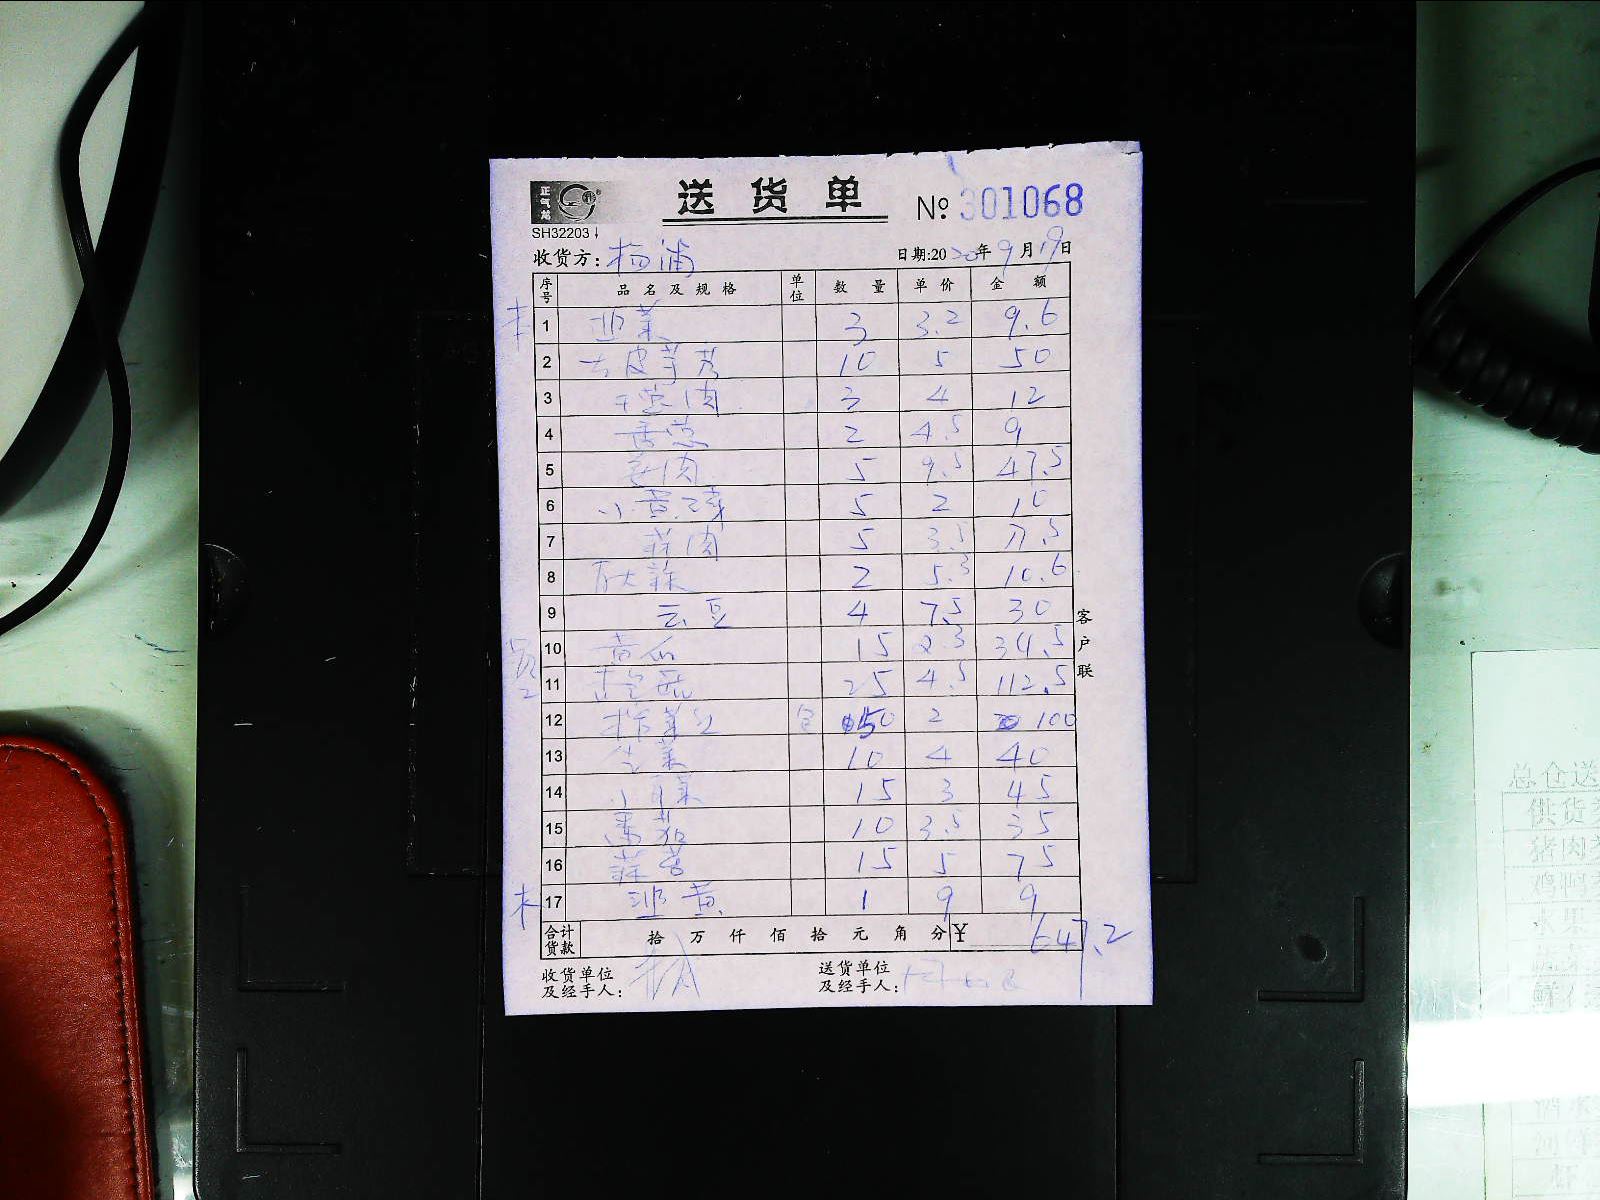 正气站
送货单 № 301068
SH32203
收货方: 杨浦 日期:2020年9月19日
序号 品名及规格 单位 数量 单价 金额
1 韭菜 3 3.2 9.6
2 去皮芋艿 10 5 50
3 干葱肉 3 4 12
4 香葱 2 4.5 9
5 姜肉 5 9.5 47.5
6 小黄 5 2 10
7 蒜肉 5 3.5 17.5
8 2 5.3 10.6
9 云豆 4 7.5 30
10 黄瓜 15 2.3 34.5
11 25 4.5 112.5
12 榨菜 包 50 2 100
13 生菜 10 4 40
14 小 菜 15 3 45
15 番茄 10 3.5 35
16 蒜苗 15 5 75
17 韭黄 1 9 9
合计货款 拾万仟佰拾元角分 ¥ 647.2
收货单位及经手人:
送货单位及经手人:
客户联
总仓送
供货
猪肉
鸡鸭
水果
蔬菜